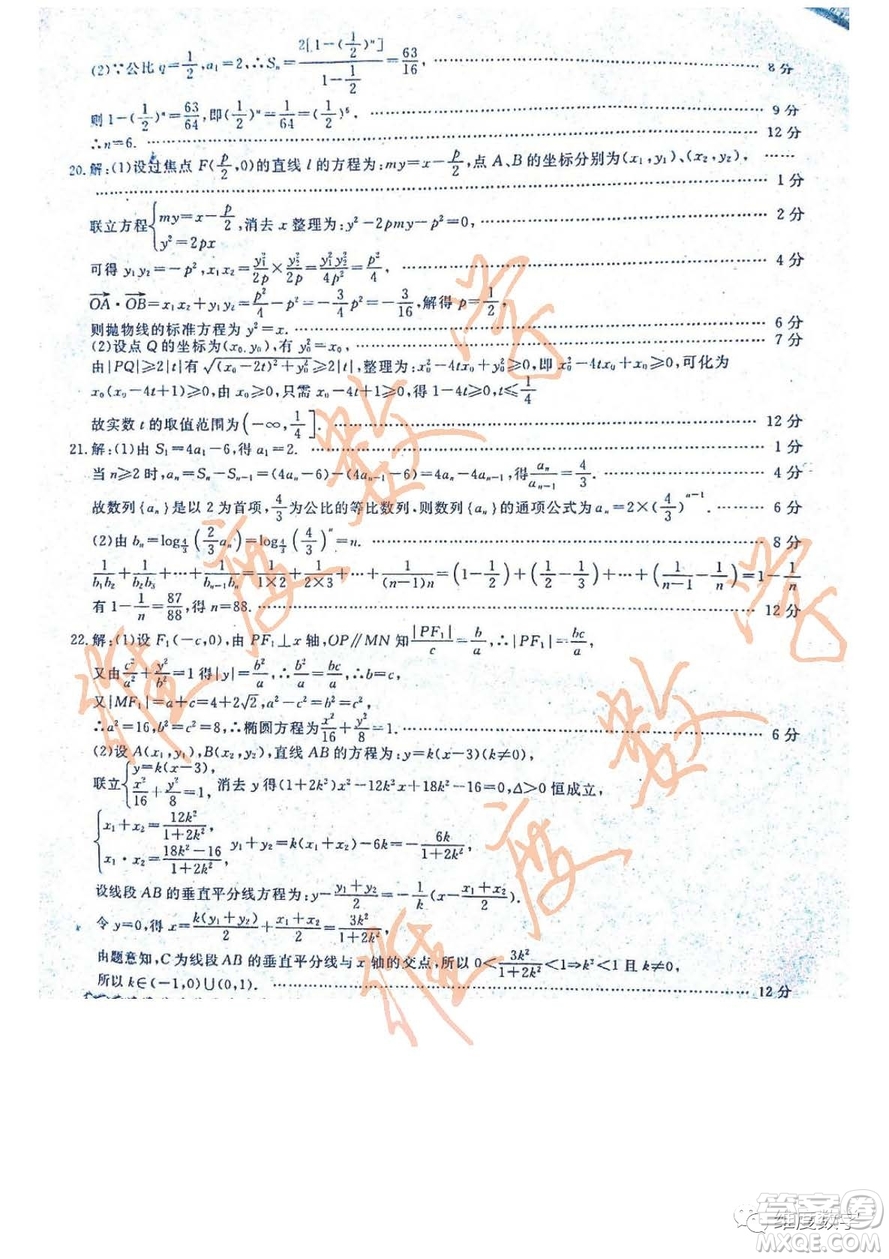 (2)∵公比 q=1/2,a₁=2,∴Sₙ=2[1-(1/2)ⁿ]/(1-1/2)=63/16, …… 8分
则 1-(1/2)ⁿ=63/64,即(1/2)ⁿ=1/64=(1/2)⁶. …… 9分
∴n=6. …… 12分
20.解:(1)设过焦点 F(p/2,0)的直线 l 的方程为:my=x-p/2,点 A、B 的坐标分别为(x₁,y₁)、(x₂,y₂), ……
…… 1分
联立方程{my=x-p/2, y²=2px,消去 x 整理为:y²-2pmy-p²=0, …… 2分
可得 y₁y₂=-p²,x₁x₂=y₁²/2p×y₂²/2p=y₁²y₂²/4p²=p²/4, …… 4分
OA·OB=x₁x₂+y₁y₂=p²/4-p²=-3/4p²=-3/16,解得 p=1/2,
则抛物线的标准方程为 y²=x. …… 6分
(2)设点 Q 的坐标为(x₀,y₀),有 y₀²=x₀, …… 7分
由|PQ|≥2|t|有√((x₀-2t)²+y₀²)≥2|t|,整理为:x₀²-4tx₀+y₀²≥0,即 x₀²-4tx₀+x₀≥0,可化为
x₀(x₀-4t+1)≥0,由 x₀≥0,只需 x₀-4t+1≥0,得 1-4t≥0,t≤1/4
故实数 t 的取值范围为(-∞,1/4]. …… 12分
21.解:(1)由 S₁=4a₁-6,得 a₁=2. …… 1分
当 n≥2 时,aₙ=Sₙ-Sₙ₋₁=(4aₙ-6)-(4aₙ₋₁-6)=4aₙ-4aₙ₋₁,得aₙ/aₙ₋₁=4/3. …… 4分
故数列{aₙ}是以 2 为首项,4/3为公比的等比数列,则数列{aₙ}的通项公式为 aₙ=2×(4/3)ⁿ⁻¹. …… 6分
(2)由 bₙ=log_{4/3}(2/3aₙ)=log_{4/3}(4/3)ⁿ=n. …… 8分
1/b₁b₂+1/b₂b₃+…+1/bₙ₋₁bₙ=1/1×2+1/2×3+…+1/(n-1)n=(1-1/2)+(1/2-1/3)+…+(1/(n-1)-1/n)=1-1/n
有 1-1/n=87/88,得 n=88. …… 12分
22.解:(1)设 F₁(-c,0),由 PF₁⊥x 轴,OP∥MN 知|PF₁|/c=b/a,∴|PF₁|=bc/a,
又由c²/a²+y²/b²=1 得|y|=b²/a,∴b²/a=bc/a,∴b=c,
又|MF₁|=a+c=4+2√2,a²-c²=b²,
∴a²=16,b²=c²=8,∴椭圆方程为x²/16+y²/8=1. …… 6分
(2)设 A(x₁,y₁),B(x₂,y₂),直线 AB 的方程为:y=k(x-3)(k≠0),
联立{y=k(x-3), x²/16+y²/8=1, 消去 y 得(1+2k²)x²-12k²x+18k²-16=0,Δ>0 恒成立,
{x₁+x₂=12k²/(1+2k²) x₁·x₂=(18k²-16)/(1+2k²), y₁+y₂=k(x₁+x₂)-6k=-6k/(1+2k²),
设线段 AB 的垂直平分线方程为:y-(y₁+y₂)/2=-1/k(x-(x₁+x₂)/2).
令 y=0,得 x=k(y₁+y₂)/2+(x₁+x₂)/2=3k²/(1+2k²)
由题意知,C 为线段 AB 的垂直平分线与 x 轴的交点,所以 0<3k²/(1+2k²)<1⇒k²<1,k≠0,
所以 k∈(-1,0)∪(0,1). …… 12分
维度数学
维度数学
维度数学
答案圈
MXQE.COM